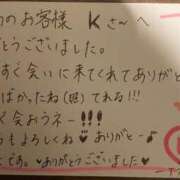 のお客様 Kさ〜へ
がとうございました。
すぐ会いに来てくれてありがと
ばかったね(照)てれる!!
く会おうネー!!!
もよろしくね♥ ありがと〜♪
です。♥ありがとうございました♥